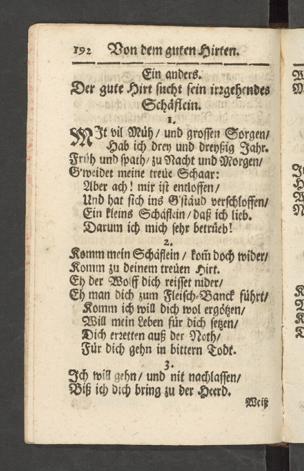 192 Von dem guten Hirten.
Ein anders.
Der gute Hirt sucht sein irrgehendes
Schäflein.
1.
MIt vil Müh/ und grossen Sorgen/
Hab ich drey und dreyßig Jahr.
Früh und spath/ zu Nacht und Morgen/
G'weidet meine treüe Schaar:
Aber ach! mir ist entloffen/
Und hat sich ins G'stäud verschloffen/
Ein kleins Schäflein/ daß ich lieb.
Darum ich mich sehr betrüeb!
2.
Komm mein Schäflein/ kom̄ doch wider/
Komm zu deinem treüen Hirt.
Eh der Wolff dich reisset nider/
Eh man dich zum Fleisch-Banck führt/
Komm ich will dich wol ergötzen/
Will mein Leben für dich setzen/
Dich erretten auß der Noth/
Für dich gehn in bittern Todt.
3.
Ich will gehn/ und nit nachlassen/
Biß ich dich bring zu der Heerd.
Weiß